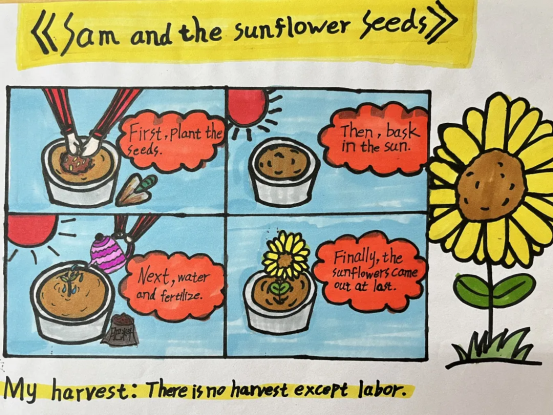 《Sam and the sunflower seeds》
First, plant the
seeds.
Then, bask
in the sun.
Next, water
and fertilize.
Finally, the
sunflowers came
out at last.
My harvest: There is no harvest except labor.